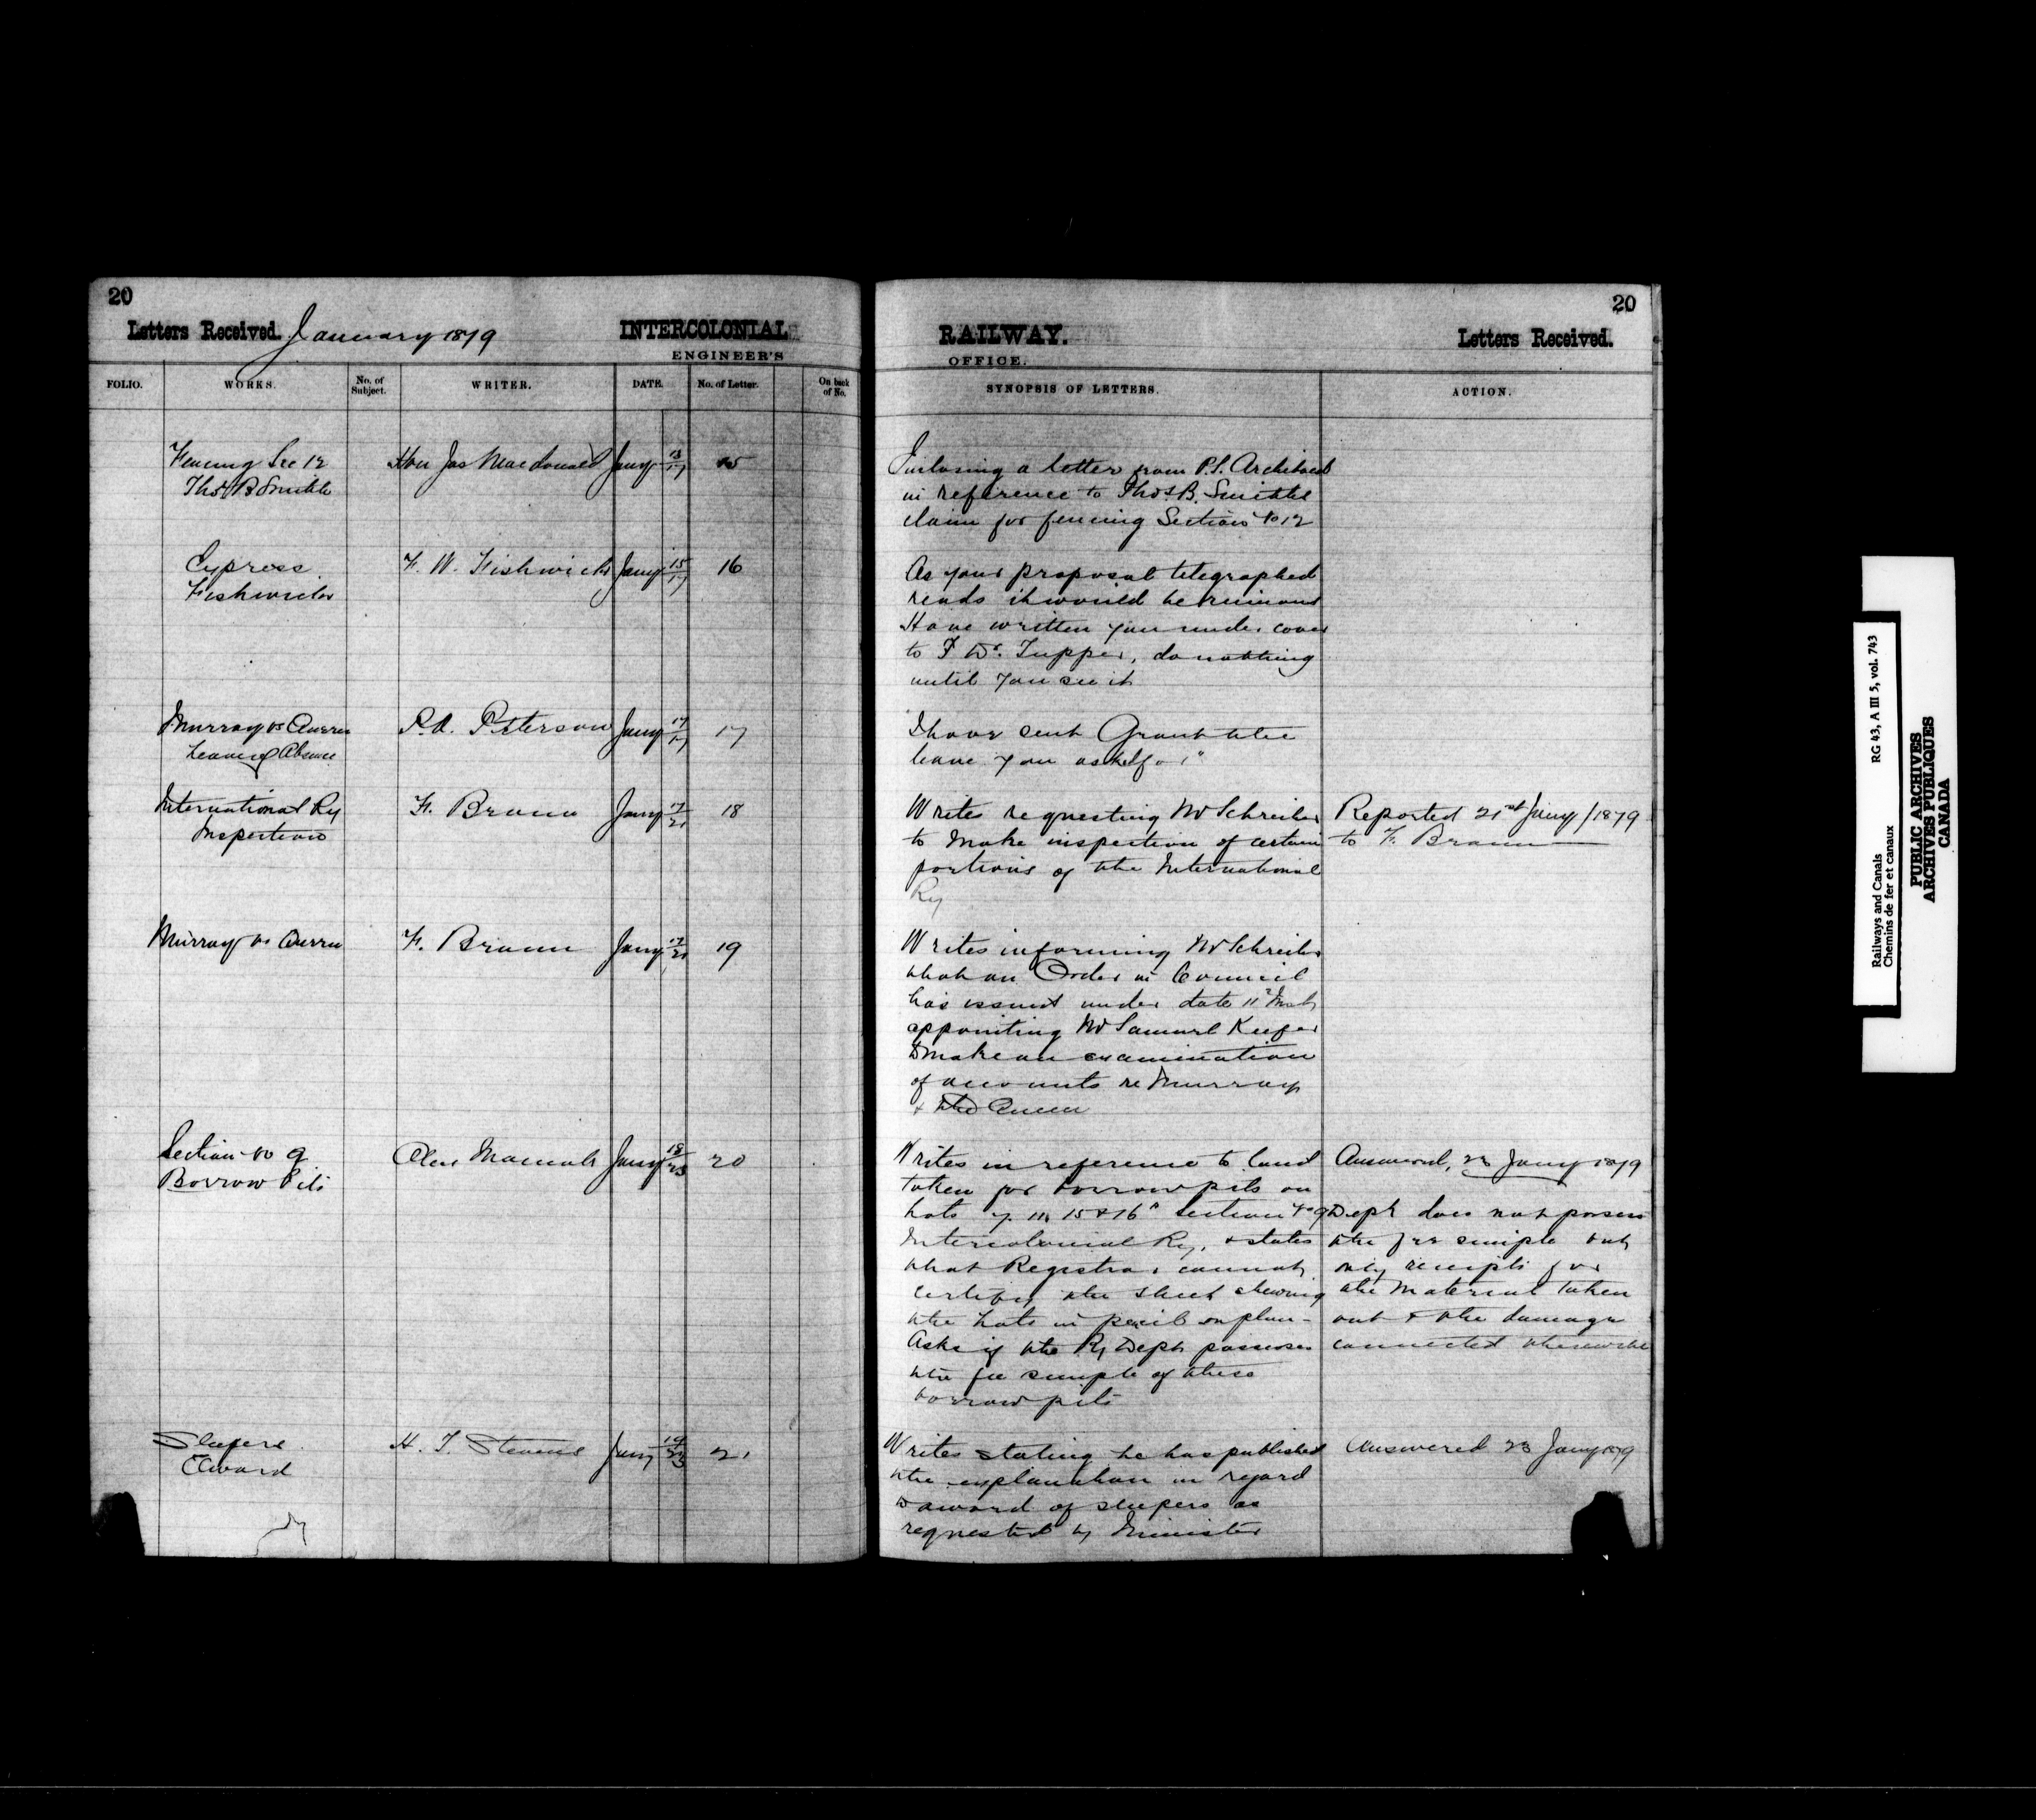 20
Letters Received. January 1879
INTERCOLONIAL
ENGINEER'S
FOLIO. WORKS. No. of Subject. WRITER. DATE. No. of Letter. On back of No.
Fencing Sec 12 Hon Jas Macdonald Jany 13/17 15
Thos B Smith
Express F. W. Fishwick Jany 15/17 16
Fishwicks
Murray vs Queen P.A. Peterson Jany 17/17 17
Leave of Absence
International Ry F. Braun Jany 17/21 18
Inspection
Murray vs Queen F. Braun Jany 17/21 19
Section No 9 Alex Macnab Jany 18/23 20
Borrow Pits
Sleepers H. T. Stevens Jany 19/23 21
Award
20
RAILWAY. Letters Received.
OFFICE.
SYNOPSIS OF LETTERS. ACTION.
Inclosing a letter from P.S. Archibald
in reference to Thos. B. Smiths
claim for fencing Section No 12
As your proposal telegraphed
reads it would be ruinous
Have written you under cover
to Dr. Tupper, do nothing
until you see it
I have sent Grant the
leave you asked for"
Writes requesting Mr Schreiber Reported 21st Jany/1879
to make inspection of certain to F. Braun
portions of the International
Ry
Writes informing Mr Schreiber
that an Order in Council
has issued under date 11th
appointing Mr Samuel Keefer
to make an examination
of accounts re Murray
& the Queen
Writes in reference to land Answered, 23 Jany 1879
taken for borrow pits on
Lots 15 & 16 Section No 9 Dept does not possess
Intercolonial Ry, & states the fee simple but
that Registrar cannot only receipts for
certify the sheet shewing the Material taken
the Lots in pencil on plan - out & the damage
Asks if the Ry Dept possesses connected therewith
the fee simple of these
borrow pits
Writes stating he has published Answered 23 Jany 1879
the explanation in regard
to award of sleepers as
requested by Minister
Railways and Canals RG 43, A III 5, vol. 743
Chemins de fer et canaux
PUBLIC ARCHIVES
ARCHIVES PUBLIQUES
CANADA